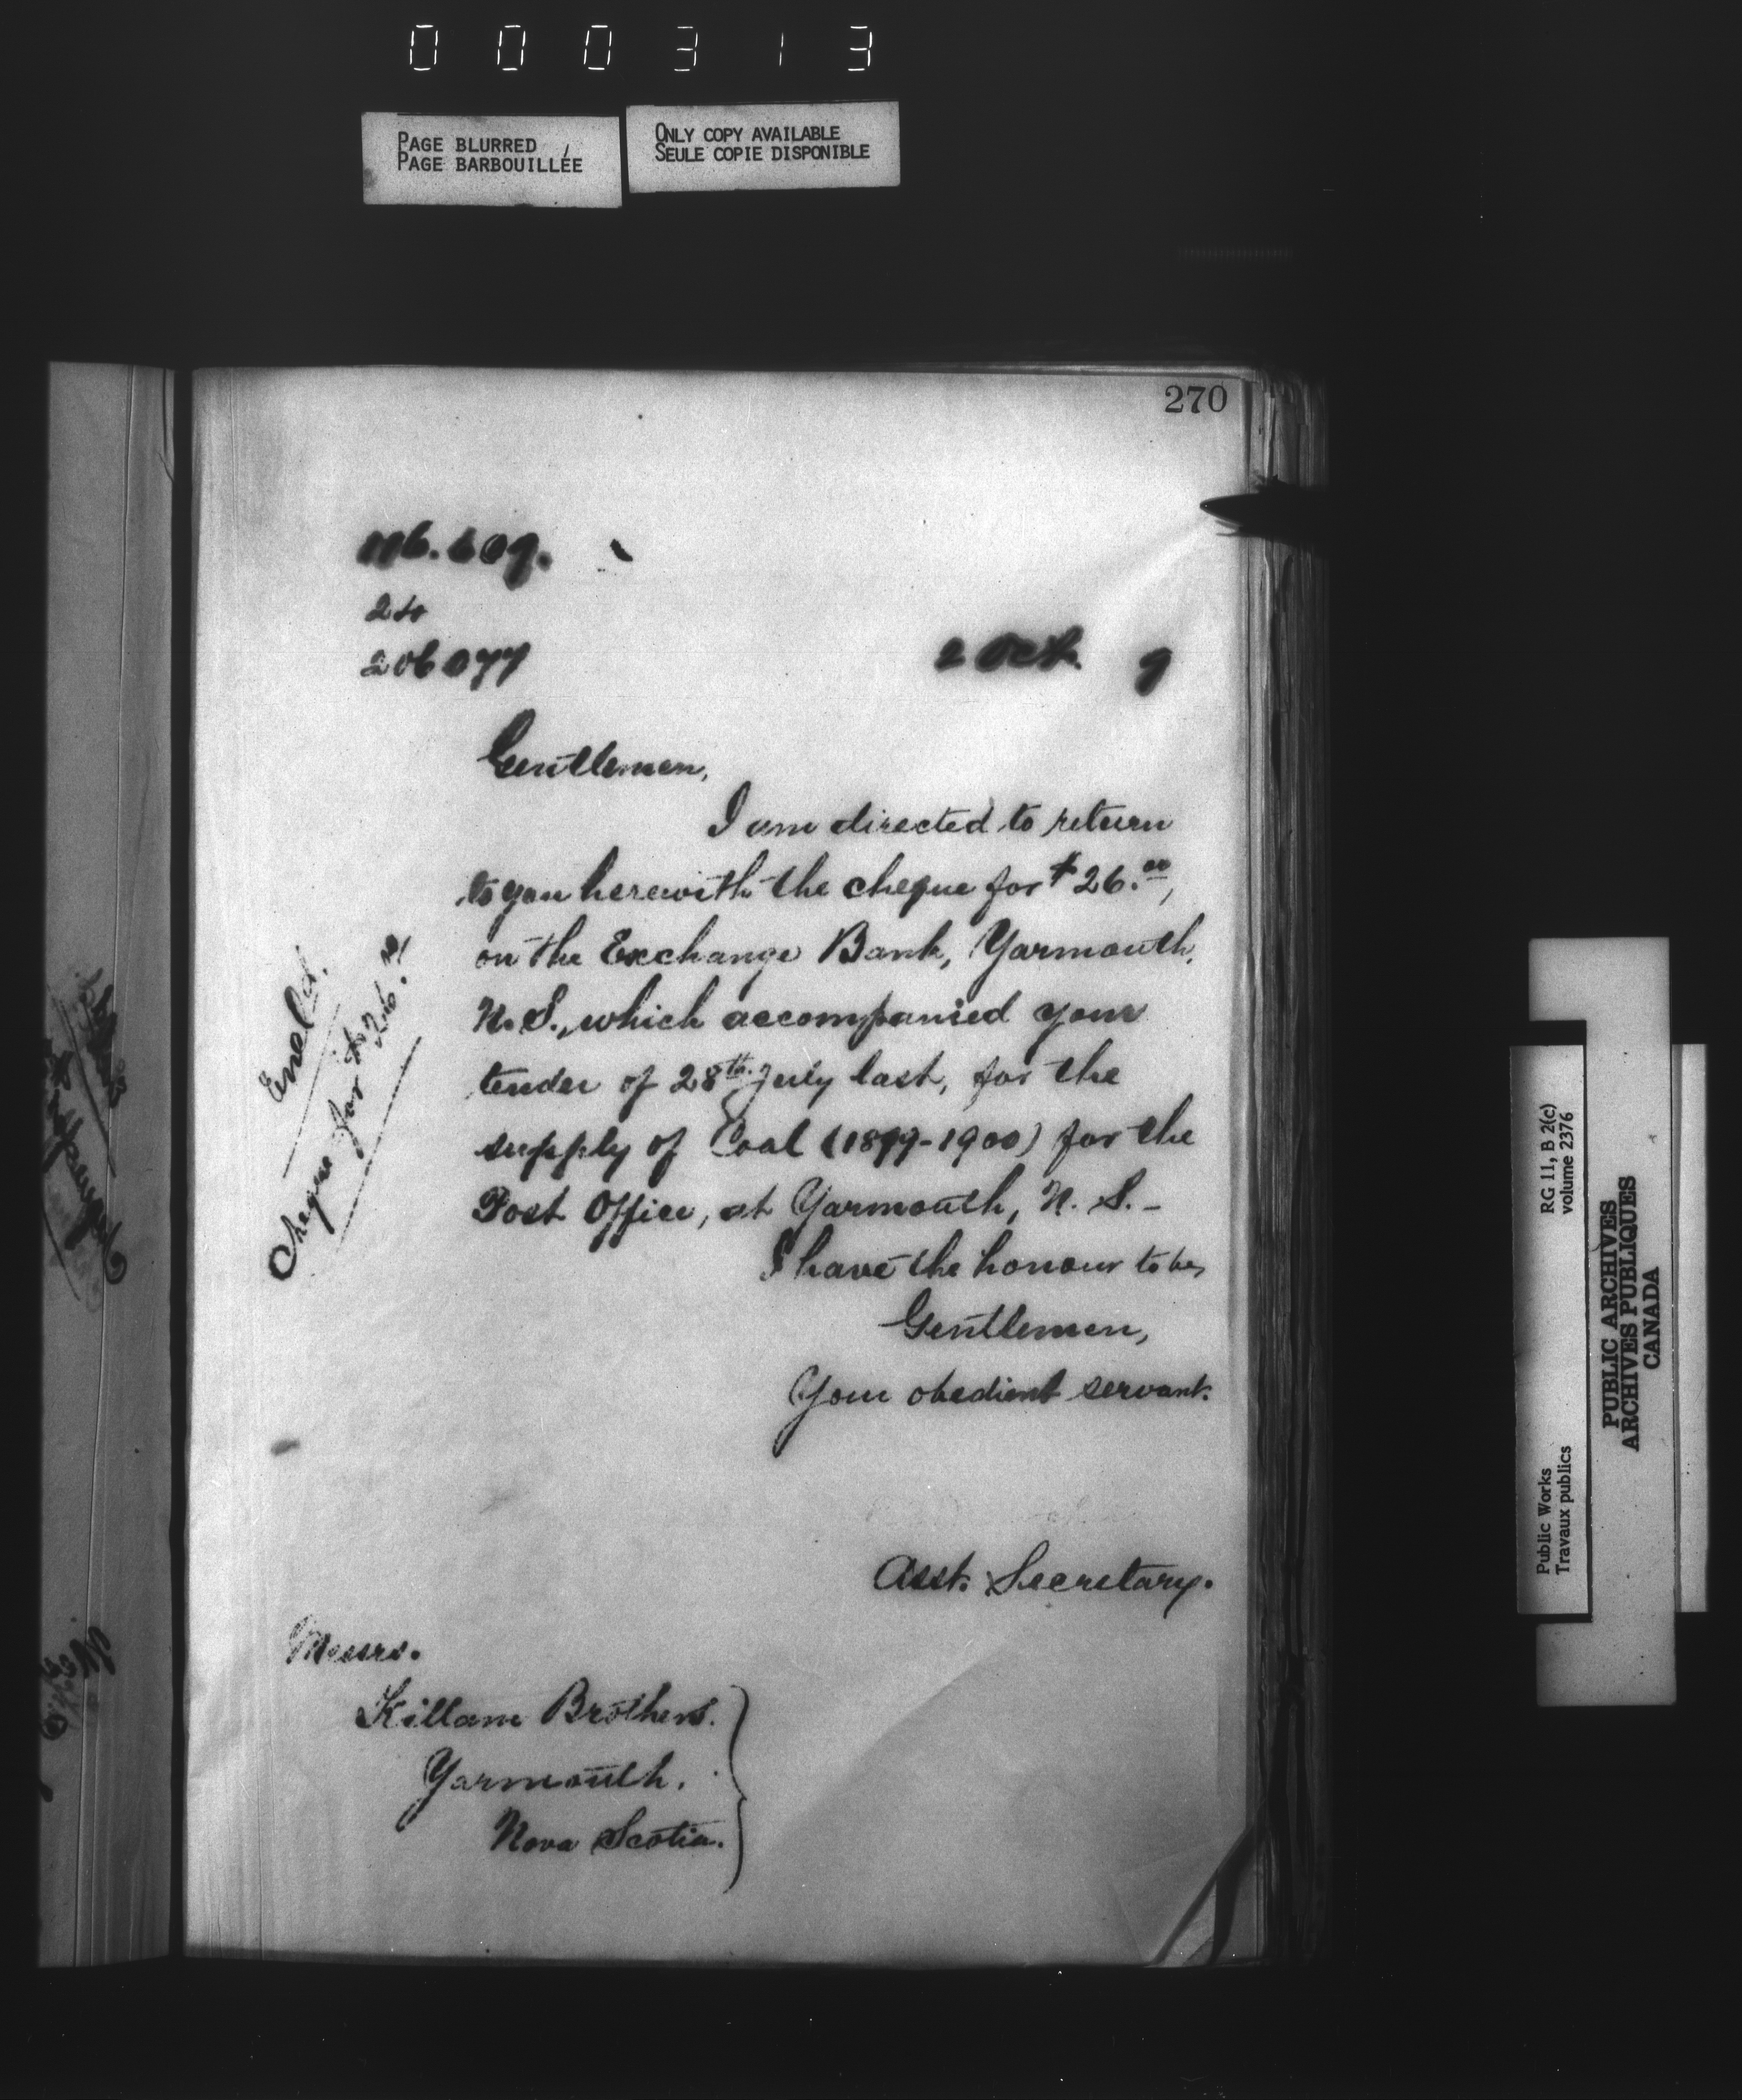 000313
PAGE BLURRED
PAGE BARBOUILLÉE
ONLY COPY AVAILABLE
SEULE COPIE DISPONIBLE
270
206077
2 Oct. 9
Gentlemen,
I am directed to return
to you herewith the cheque for $26.00,
on the Exchange Bank, Yarmouth,
N. S., which accompanied your
tender of 28th July last, for the
supply of Coal (1899-1900) for the
Post Office, at Yarmouth, N. S. -
I have the honour to be,
Gentlemen,
Your obedient servant.
Asst. Secretary.
Encl.
Cheque for $26.00
Messrs.
Killam Brothers.
Yarmouth.
Nova Scotia.
Public Works
Travaux publics
RG 11, B 2(c)
volume 2376
PUBLIC ARCHIVES
ARCHIVES PUBLIQUES
CANADA